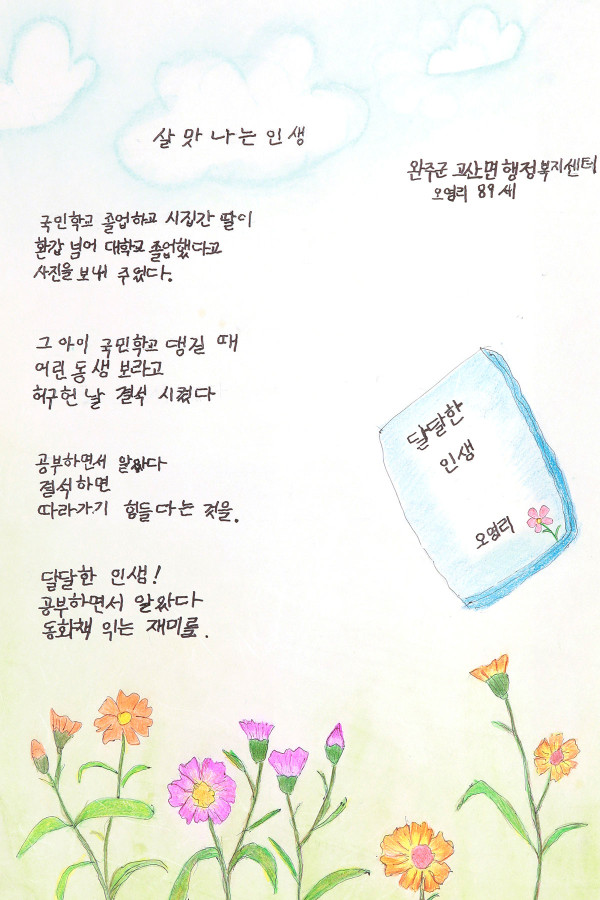 살 맛 나는 인생
완주군 고산면 행정복지센터
오영리 89세
국민학교 졸업하고 시집간 딸이
환갑 넘어 대학교 졸업했다고
사진을 보내 주었다.
그 아이 국민학교 댕길 때
어린 동생 보라고
허구헌 날 결석 시켰다
공부하면서 알았다
결석하면
따라가기 힘들다는 것을.
달달한 인생!
공부하면서 알았다
동화책 읽는 재미를.
달달한
인생
오영리